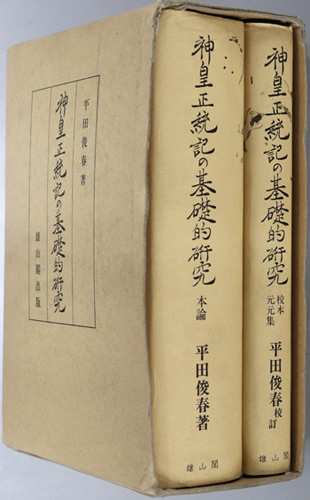 平田俊春著
神皇正統記の基礎的研究
雄山閣出版
神皇正統記の基礎的研究
本論
平田俊春著
雄山閣
神皇正統記の基礎的研究
校本
元元集
平田俊春校訂
雄山閣